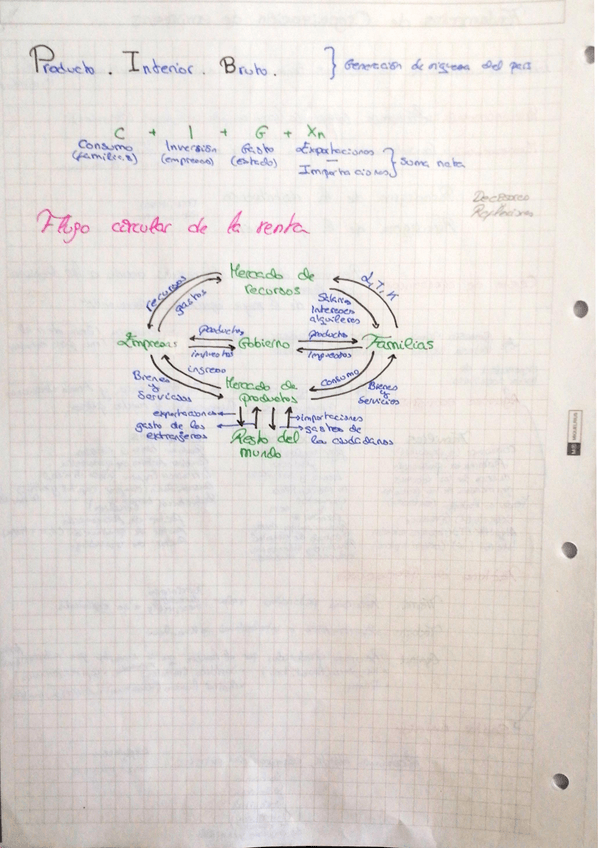 Producto . Interior . Bruto. } Generación de riqueza del país
C + I + G + Xn
Consumo Inversión Gasto Exportaciones
(familias) (empresas) (estado) —
Importaciones } Suma neta
Flujo circular de la renta
Mercado de
recursos
recursos
gastos
L, T, K
Salarios
Intereses
alquileres
Empresas
productos
impuestos
Gobierno
productos
impuestos
Familias
ingreso
consumo
Bienes
y
Servicios
Mercado de
productos
Bienes
y
Servicios
exportaciones
importaciones
gasto de los
extranjeros
gastos de
los ciudadanos
Resto del
mundo